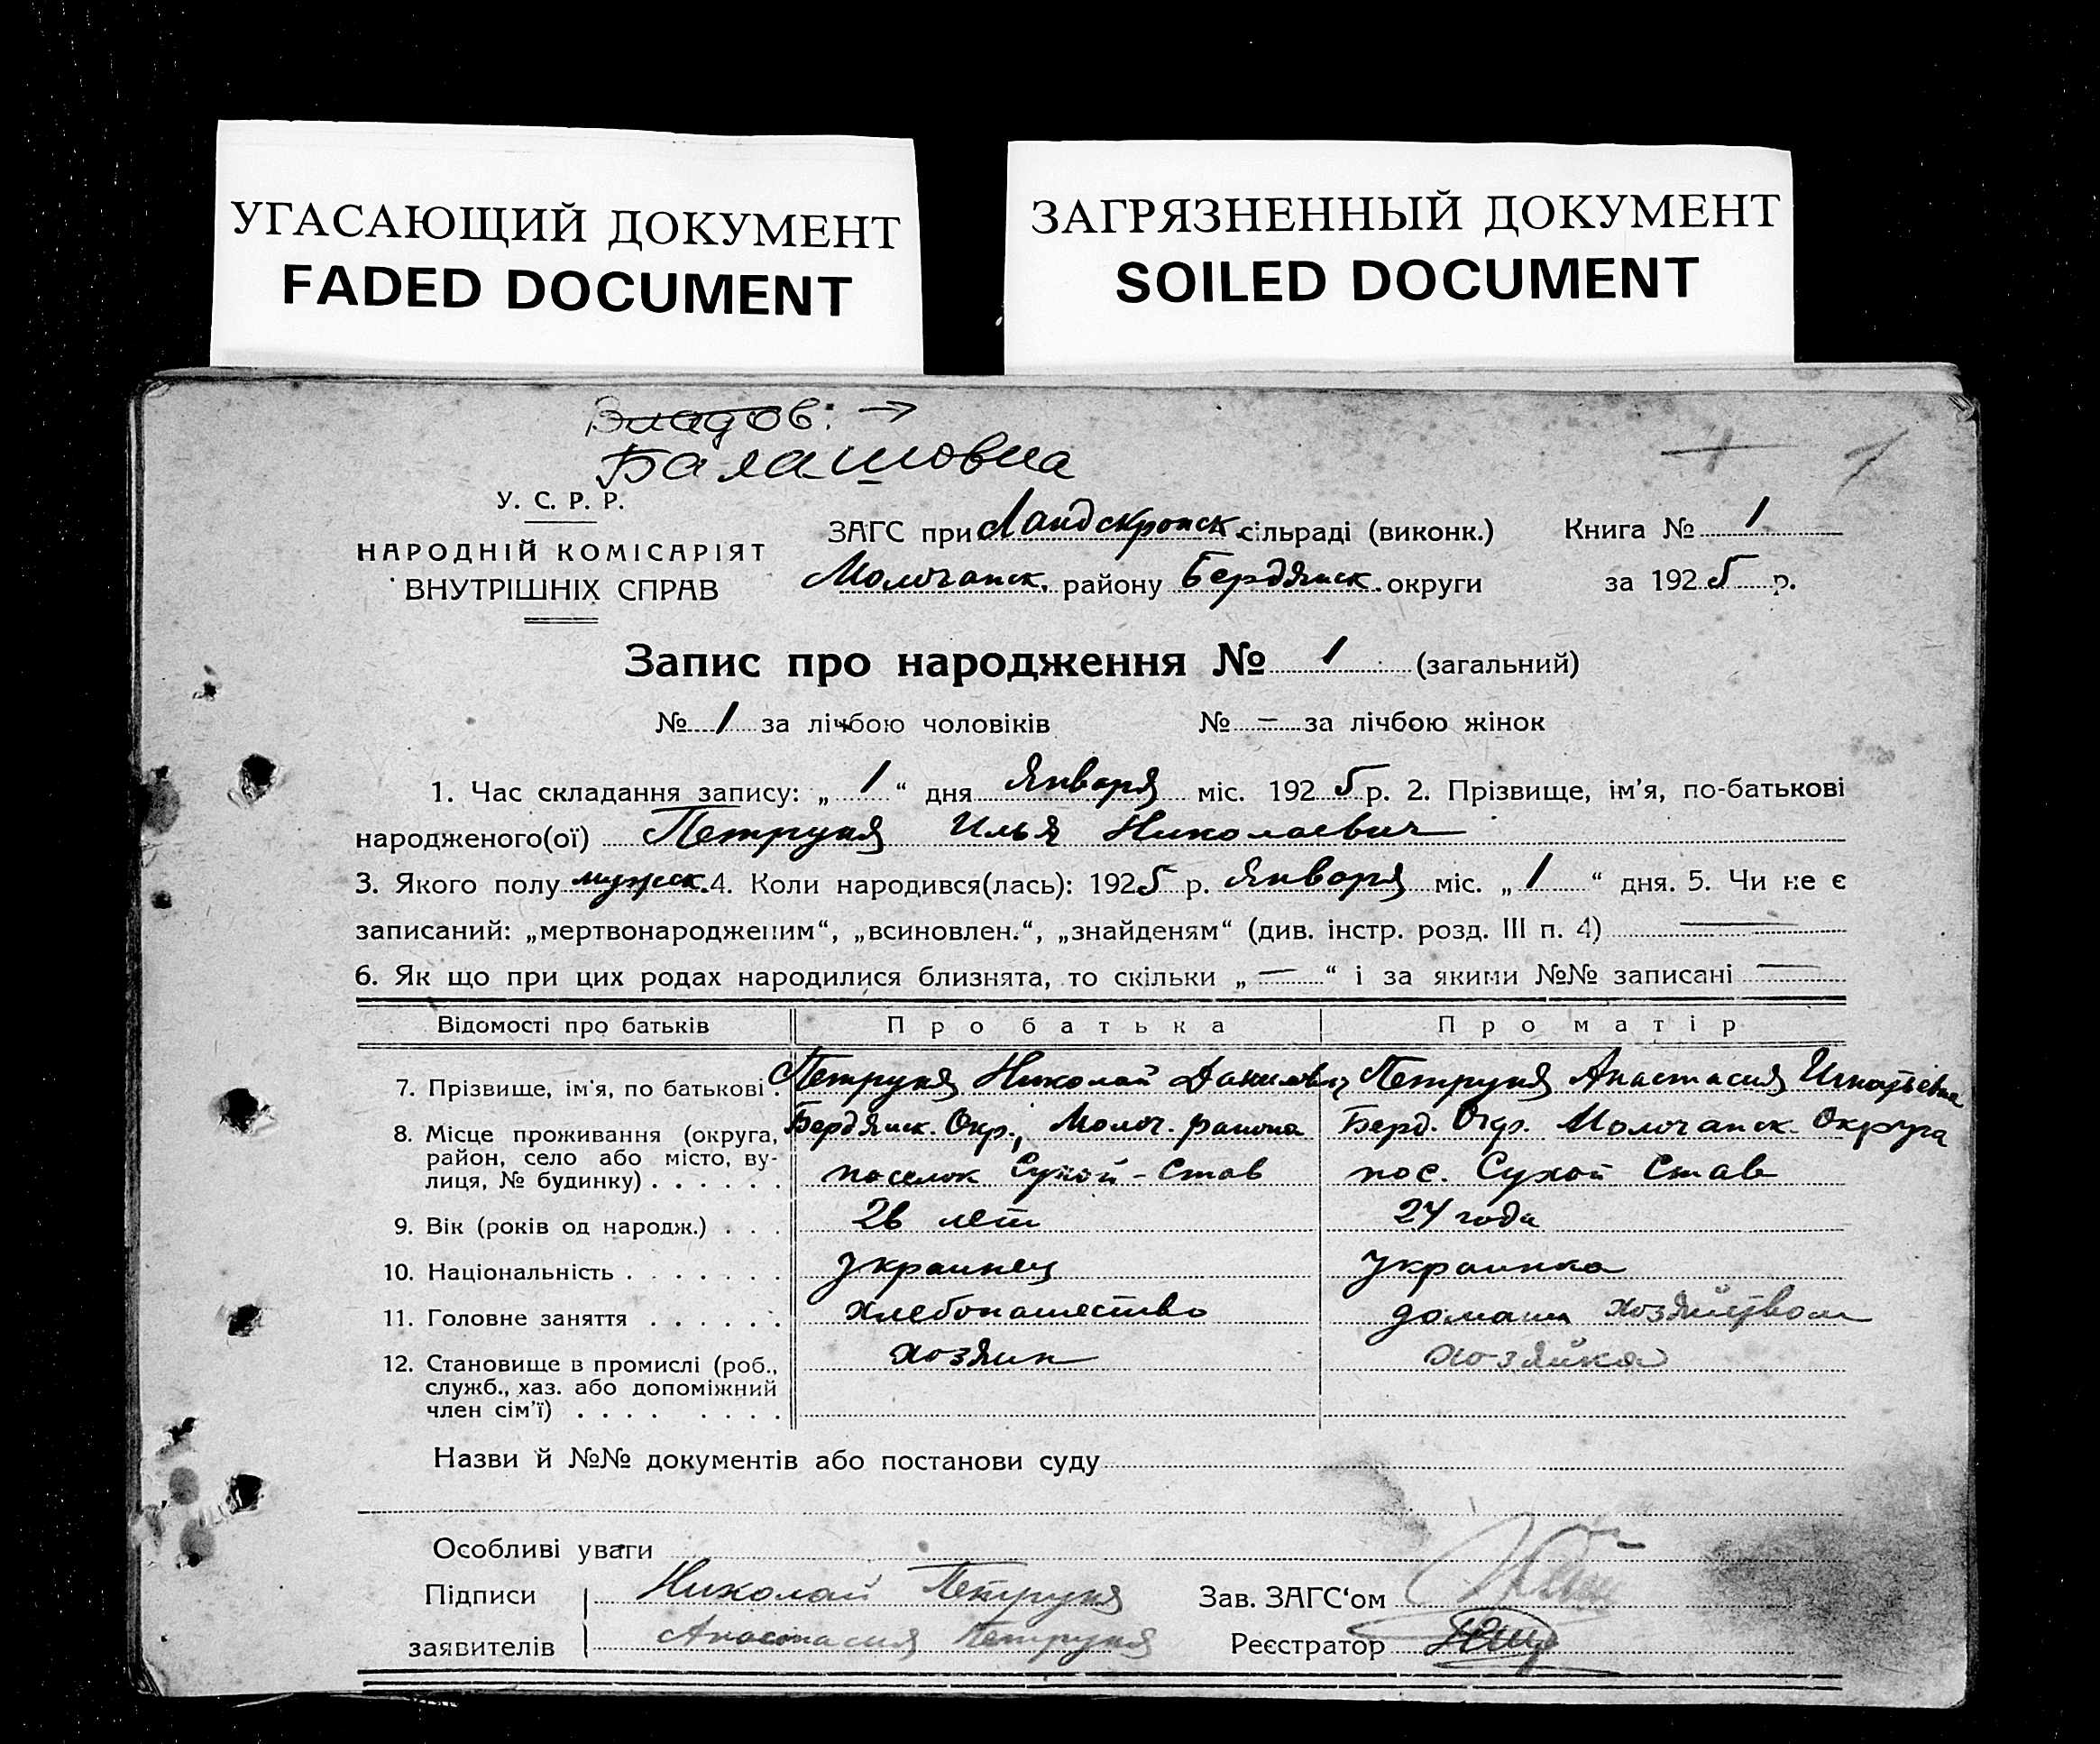 УГАСАЮЩИЙ ДОКУМЕНТ
FADED DOCUMENT
ЗАГРЯЗНЕННЫЙ ДОКУМЕНТ
SOILED DOCUMENT
Владов: →
Балашовка
1
У. С. Р. Р.
НАРОДНІЙ КОМІСАРІЯТ
ВНУТРІШНІХ СПРАВ
ЗАГС при Ландскронск. сільраді (виконк.)
Молочанск. району Бердянск. округи
Книга № 1
за 1925 р.
Запис про народження № 1 (загальний)
№ 1 за лічбою чоловіків № — за лічбою жінок
1. Час складання запису: „ 1 “ дня Января міс. 1925 р. 2. Прізвище, ім'я, по-батькові
народженого(ої) Петруня Илья Николаевич
3. Якого полу мужск. 4. Коли народився(лась): 1925 р. Января міс. „ 1 “ дня. 5. Чи не є
записаний: „мертвонародженим“, „всиновлен.“, „знайденям“ (див. інстр. розд. III п. 4) —
6. Як що при цих родах народилися близнята, то скільки „ — “ і за якими №№ записані —
Відомості про батьків Про батька Про матір
7. Прізвище, ім'я, по батькові . Петруня Николай Данилович Петруня Анастасия Игнатьевна
8. Місце проживання (округа, Бердянск. Окр., Молоч. района Берд. Окр. Молочанск. Округа
район, село або місто, ву-
лиця, № будинку) . . . . . . поселок Сухой-Став пос. Сухой Став
9. Вік (років од народж.) . . . 26 лет 24 года
10. Національність . . . . . . . украинец украинка
11. Головне заняття . . . . . . хлебопашество домашн хозяйством
12. Становище в промислі (роб., хозяин хозяйка
служб., хаз. або допоміжний
член сім'ї) . . . . . . . .
Назви й №№ документів або постанови суду
Особливі уваги
Підписи Николай Петруня Зав. ЗАГС‘ом
заявителів Анастасия Петруня Реєстратор